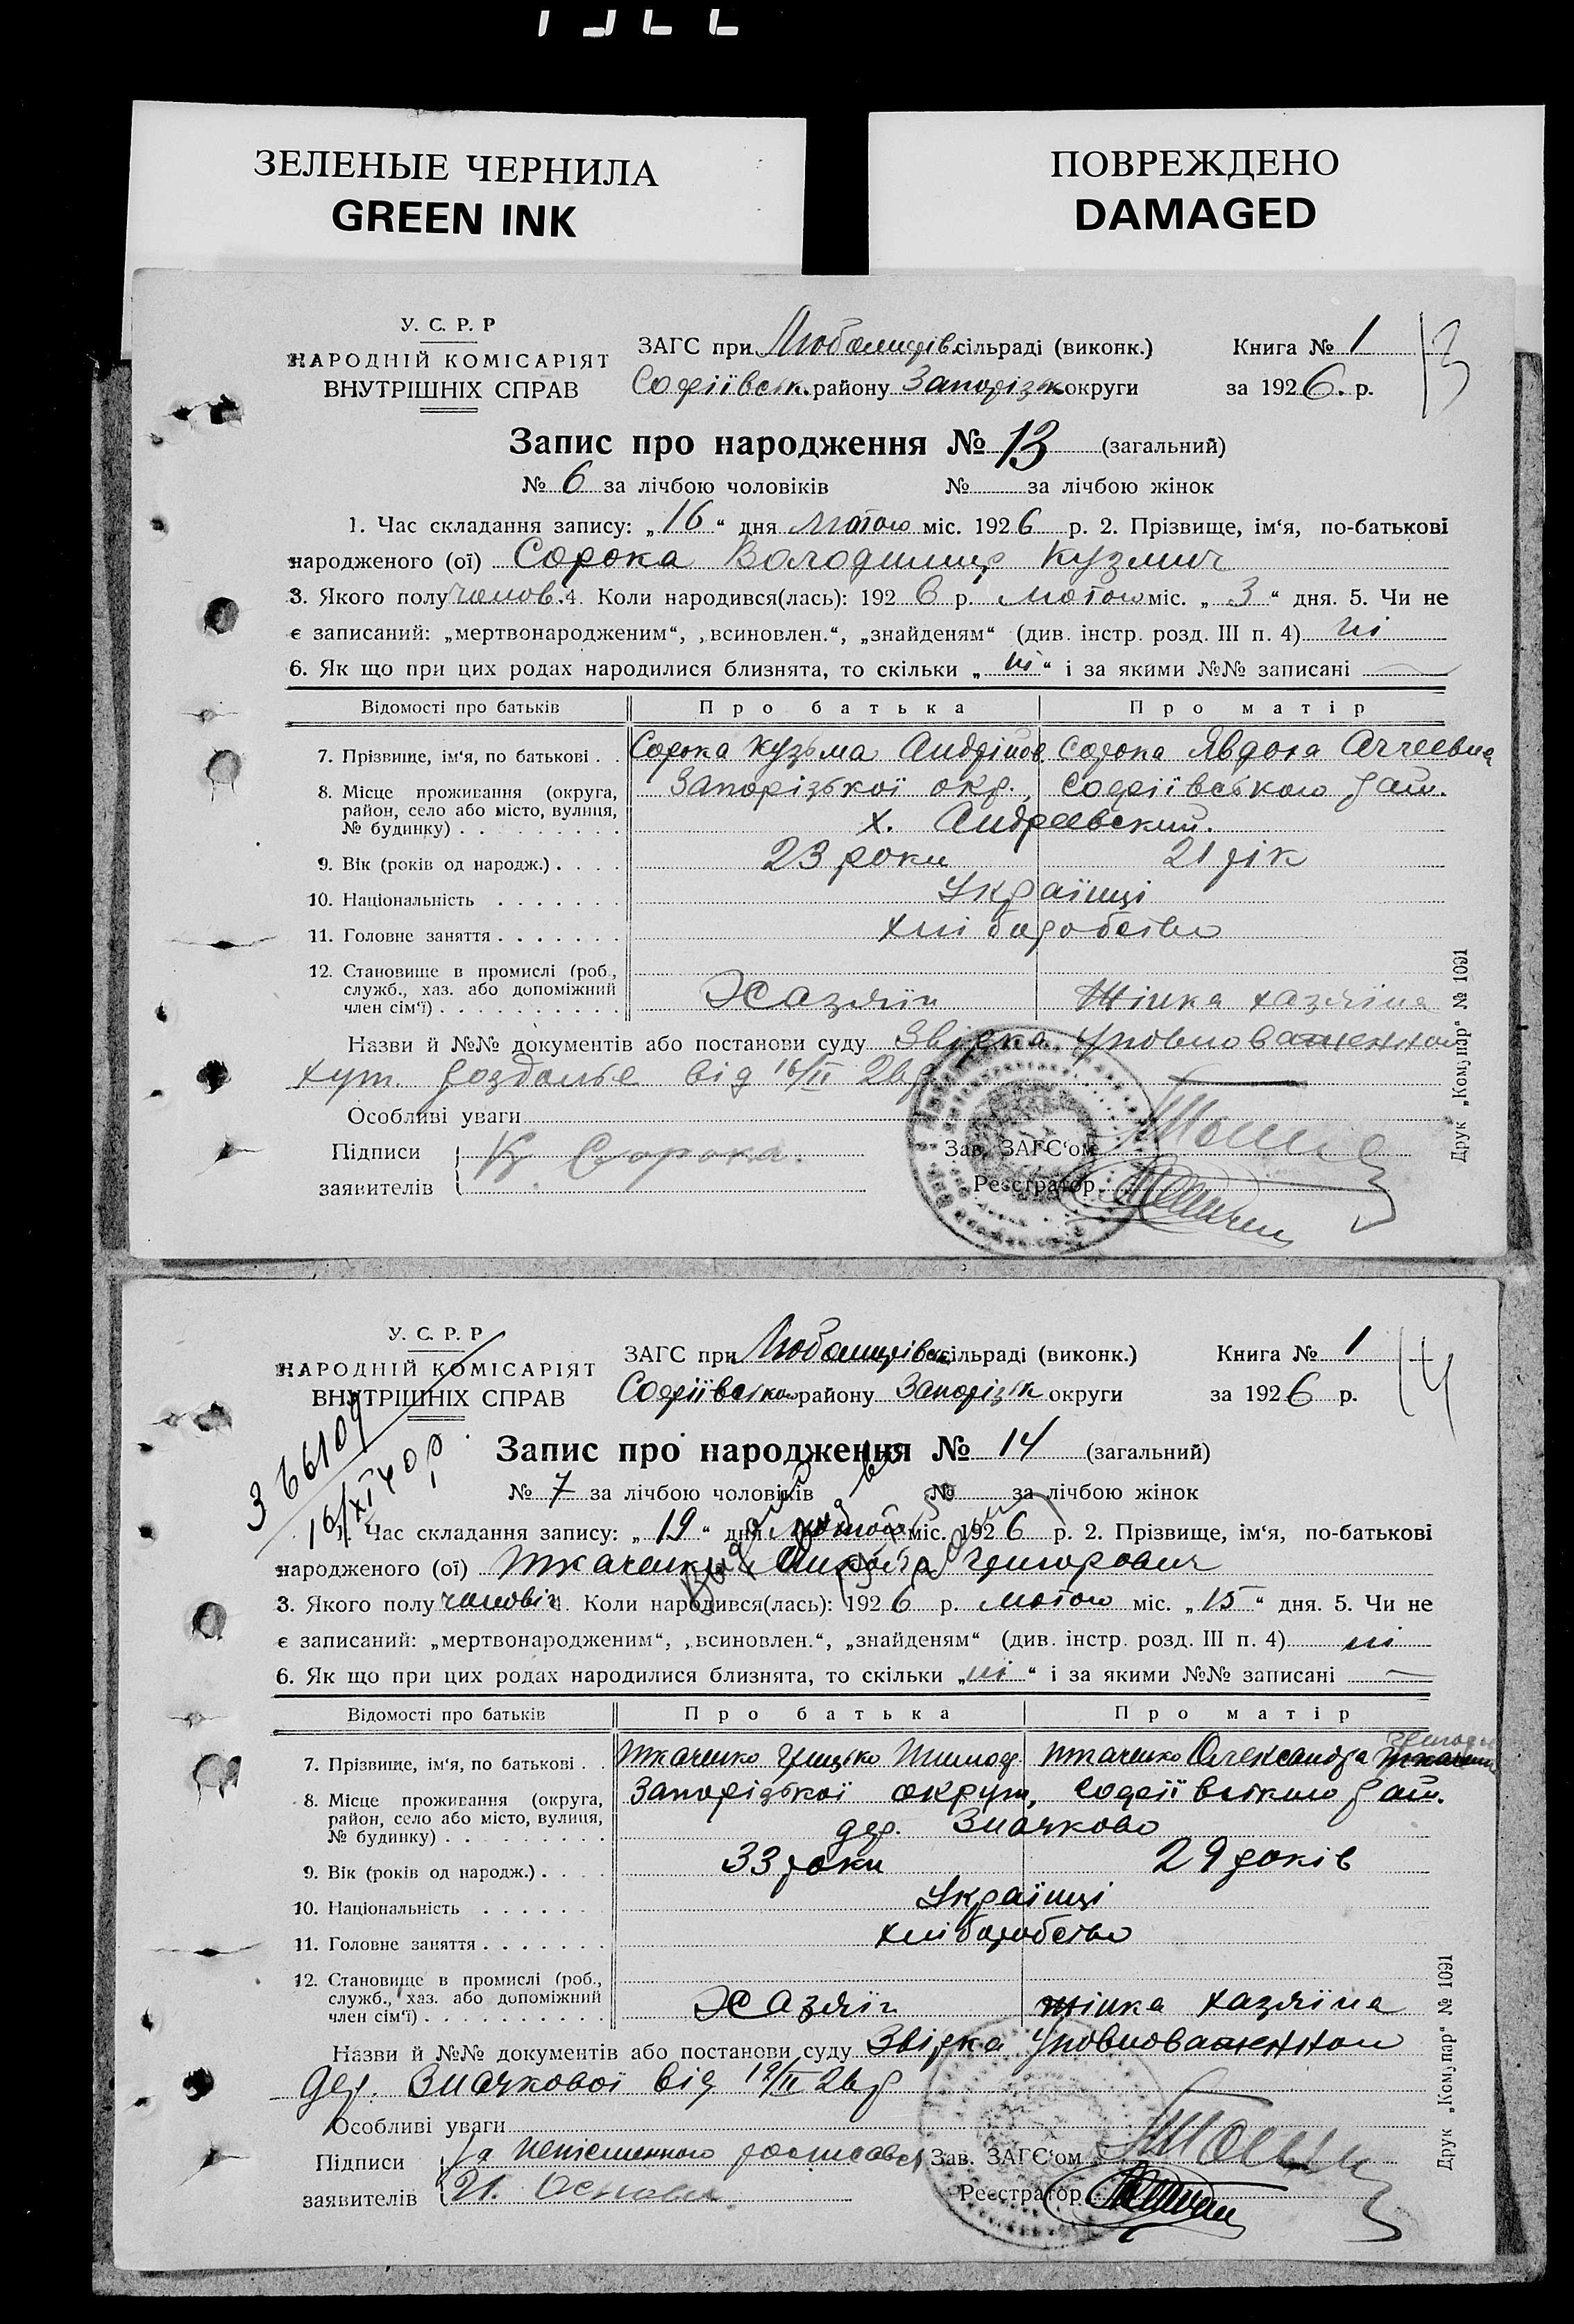 ЗЕЛЕНЫЕ ЧЕРНИЛА
GREEN INK
ПОВРЕЖДЕНО
DAMAGED
У. С. Р. Р
НАРОДНІЙ КОМІСАРІЯТ
ВНУТРІШНІХ СПРАВ
ЗАГС при Любомирів. сільраді (виконк.)
Книга № 1
13
Софіївськ. району Запорізьк округи
за 1926. р.
Запис про народження № 13 (загальний)
№ 6 за лічбою чоловіків № за лічбою жінок
1. Час складання запису: „16“ дня лютого міс. 1926 р. 2. Прізвище, ім‘я, по-батькові
народженого (ої) Сорока Володимир Кузмич
3. Якого полу чолов. 4. Коли народився(лась): 1926 р. лютого міс. „3“ дня. 5. Чи не
є записаний: „мертвонародженим“, „всиновлен.“, „знайденям“ (див. інстр. розд. III п. 4) ні
6. Як що при цих родах народилися близнята, то скільки „ні“ і за якими №№ записані —
Відомості про батьків Про батька Про матір
7. Прізвище, ім‘я, по батькові . . Сорока Кузьма Андрійов. Сорока Явдоха
8. Місце проживання (округа, район, село або місто, вулиця, № будинку) Запорізької окр., Софіївського рай.
х. Андреевский.
9. Вік (років од народж.) . . . . 23 роки 21 рік
10. Національність . . . . . . . Українці
11. Головне заняття . . . . . . . хліборобство
12. Становище в промислі (роб., служб., хаз. або допоміжний член сім‘ї) . . . . . . . . . . Хазяїн Жінка хазяїна
Назви й №№ документів або постанови суду Звірка Уповноваженного
хут. Роздолье від 16/II 26р
Особливі уваги
Підписи К. Сорока. Зав. ЗАГС‘ом
заявителів Реєстратор
Друк „Комунар“ № 1091
У. С. Р. Р
НАРОДНІЙ КОМІСАРІЯТ
ВНУТРІШНІХ СПРАВ
ЗАГС при Любомирівськ сільраді (виконк.)
Книга № 1
14
Софіївського району Запорізьк округи
за 1926 р.
Запис про народження № 14 (загальний)
№ 7 за лічбою чоловіків № за лічбою жінок
16/XI 40 р.
1. Час складання запису: „19“ дня лютого міс. 1926 р. 2. Прізвище, ім‘я, по-батькові
народженого (ої) Ткаченко Микола Григорович
3. Якого полу чоловік 4. Коли народився(лась): 1926 р. лютого міс. „15“ дня. 5. Чи не
є записаний: „мертвонародженим“, „всиновлен.“, „знайденям“ (див. інстр. розд. III п. 4) ні
6. Як що при цих родах народилися близнята, то скільки „ні“ і за якими №№ записані —
Відомості про батьків Про батька Про матір
7. Прізвище, ім‘я, по батькові . . Ткаченко Грицько Тимоф. Ткаченко Олександра
8. Місце проживання (округа, район, село або місто, вулиця, № будинку) Запорізької округи, Софіївського рай.
дер. Значково
9. Вік (років од народж.) . . . . 33 роки 29 років
10. Національність . . . . . . Українці
11. Головне заняття . . . . . . . хліборобство
12. Становище в промислі (роб., служб., хаз. або допоміжний член сім‘ї) . . . . . . . . . . Хазяїн жінка хазяїна
Назви й №№ документів або постанови суду Звірка Уповноваженного
дер. Значкової від 19/II 26р
Особливі уваги
Підписи за неписьменного росписався Зав. ЗАГС‘ом
заявителів Реєстратор
Друк „Комунар“ № 1091